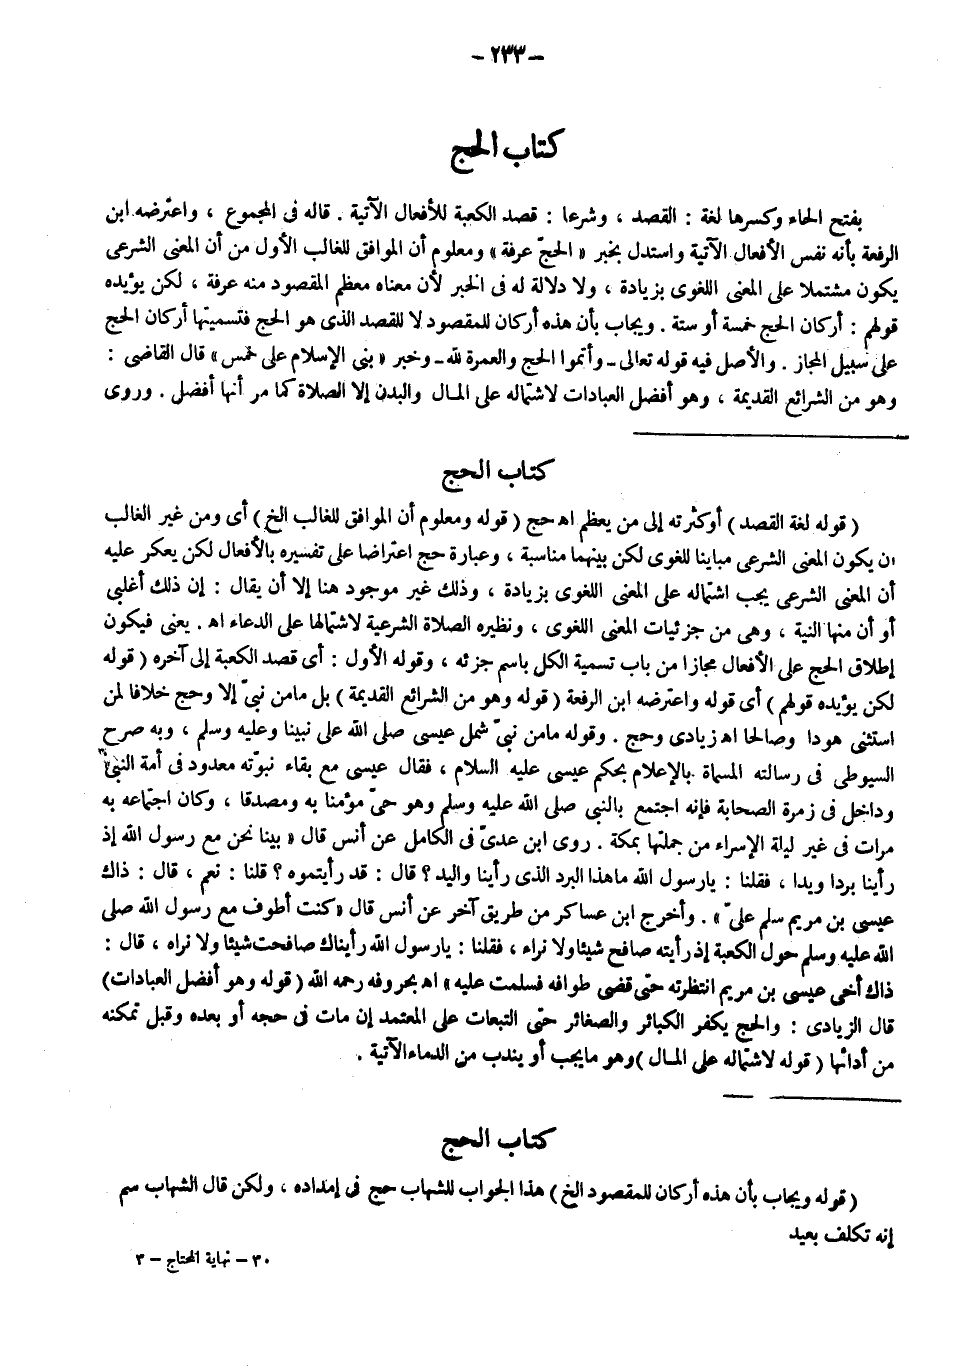 - ٢٣٣ -
كتاب الحج
بفتح الحاء وكسرها لغة : القصد ، وشرعا : قصد الكعبة للأفعال الآتية . قاله فى المجموع ، واعترضه ابن
الرفعة بأنه نفس الأفعال الآتية واستدل بخبر « الحجّ عرفة » ومعلوم أن الموافق للغالب الأول من أن المعنى الشرعى
يكون مشتملا على المعنى اللغوى بزيادة ، ولا دلالة له فى الخبر لأن معناه معظم المقصود منه عرفة ، لكن يؤيده
قولهم : أركان الحج خمسة أو ستة . ويجاب بأن هذه أركان للمقصود لا للقصد الذى هو الحج فتسميتها أركان الحج
على سبيل المجاز . والأصل فيه قوله تعالى ـ وأتموا الحج والعمرة لله ـ وخبر « بنى الإسلام على خمس » قال القاضى :
وهو من الشرائع القديمة ، وهو أفضل العبادات لاشتماله على المال والبدن إلا الصلاة كما مر أنها أفضل . وروى
كتاب الحج
( قوله لغة القصد ) أوكثرته إلى من يعظم اه حج ( قوله ومعلوم أن الموافق للغالب الخ ) أى ومن غير الغالب
ان يكون المعنى الشرعى مباينا للغوى لكن بينهما مناسبة ، وعبارة حج اعتراضا على تفسيره بالأفعال لكن يعكر عليه
أن المعنى الشرعى يجب اشتماله على المعنى اللغوى بزيادة ، وذلك غير موجود هنا إلا أن يقال : إن ذلك أغلبى
أو أن منها النية ، وهى من جزئيات المعنى اللغوى ، ونظيره الصلاة الشرعية لاشتمالها على الدعاء اه . يعنى فيكون
إطلاق الحج على الأفعال مجازا من باب تسمية الكل باسم جزئه ، وقوله الأول : أى قصد الكعبة إلى آخره ( قوله
لكن يؤيده قولهم ) أى قوله واعترضه ابن الرفعة ( قوله وهو من الشرائع القديمة ) بل مامن نبىّ إلا وحج خلافا لمن
استثنى هودا وصالحا اه زيادى وحج . وقوله مامن نبىّ شمل عيسى صلى الله على نبينا وعليه وسلم ، وبه صرح
السيوطى فى رسالته المسماة بالإعلام بحكم عيسى عليه السلام ، فقال عيسى مع بقاء نبوّته معدود فى أمة النبىّ
وداخل فى زمرة الصحابة فإنه اجتمع بالنبى صلى الله عليه وسلم وهو حىّ مؤمنا به ومصدقا ، وكان اجتماعه به
مرات فى غير ليلة الإسراء من جملتها بمكة . روى ابن عدىّ فى الكامل عن أنس قال « بينا نحن مع رسول الله إذ
رأينا بردا ويدا ، فقلنا : يارسول الله ماهذا البرد الذى رأينا واليد ؟ قال : قد رأيتموه ؟ قلنا : نعم ، قال : ذاك
عيسى بن مريم سلم علىّ » . وأخرج ابن عساكر من طريق آخر عن أنس قال « كنت أطوف مع رسول الله صلى
الله عليه وسلم حول الكعبة إذ رأيته صافح شيئا ولا نراه ، فقلنا : يارسول الله رأيناك صافحت شيئا ولا نراه ، قال :
ذاك أخى عيسى بن مريم انتظرته حتى قضى طوافه فسلمت عليه » اه بحروفه رحمه الله ( قوله وهو أفضل العبادات)
قال الزيادى : والحج يكفر الكبائر والصغائر حتى التبعات على المعتمد إن مات فى حجه أو بعده وقبل تمكنه
من أدائها ( قوله لاشتماله على المال ) وهو مايجب أو يندب من الدماء الآتية .
كتاب الحج
( قوله ويجاب بأن هذه أركان للمقصود الخ ) هذا الجواب للشهاب حج فى إمداده ، ولكن قال الشهاب سم
إنه تكلف بعيد
٣٠ - نهاية المحتاج - ٣